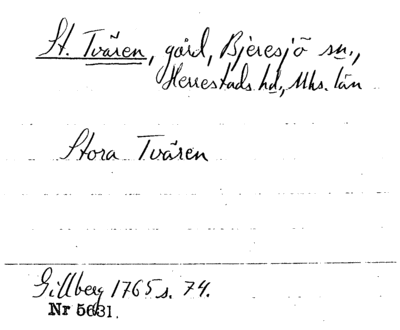 St. Tvären, gård, Bjeresjö sn.,
Herrestads hd., Mhs. län
Stora Tvären
Gillberg 1765 s. 74.
Nr 5631.